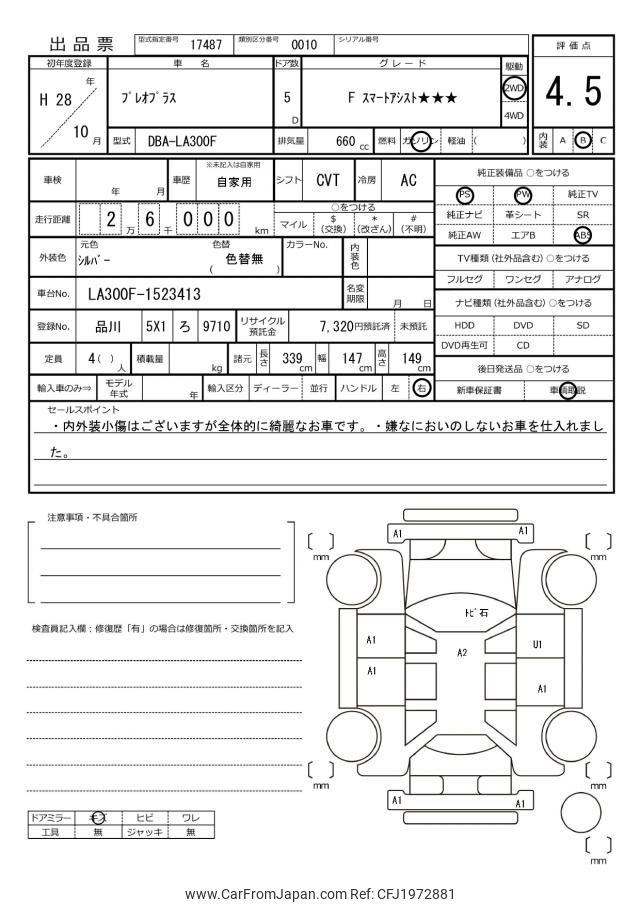 出品票
型式指定番号 17487 類別区分番号 0010 シリアル番号
評価点
4.5
内装 A B C
初年度登録 車名 ドア数 グレード 駆動
H 28 年 10 月 プレオプラス 5 D F スマートアシスト★★★ 2WD 4WD
型式 DBA-LA300F 排気量 660 cc 燃料 ガソリン 軽油 ( )
車検 年 月 車歴 ※未記入は自家用 自家用 シフト CVT 冷房 AC
走行距離 2 6 0 0 0 万 千 km ○をつける
マイル $ (交換) * (改ざん) # (不明)
外装色 元色 シルバー 色替 ( 色替無 ) カラーNo. 内装色
車台No. LA300F-1523413 名変期限 月 日
登録No. 品川 5X1 ろ 9710 リサイクル預託金 7,320円預託済 未預託
定員 4( )人 積載量 kg 諸元 長さ 339 cm 幅 147 cm 高さ 149 cm
輸入車のみ⇒ モデル年式 年 輸入区分 ディーラー 並行 ハンドル 左 右
純正装備品 ○をつける
PS PW 純正TV
純正ナビ 革シート SR
純正AW エアB ABS
TV種類 (社外品含む) ○をつける
フルセグ ワンセグ アナログ
ナビ種類 (社外品含む) ○をつける
HDD DVD SD
DVD再生可 CD
後日発送品 ○をつける
新車保証書 車輌取説
セールスポイント
・内外装小傷はございますが全体的に綺麗なお車です。・嫌なにおいのしないお車を仕入れまし
た。
注意事項・不具合箇所
検査員記入欄：修復歴「有」の場合は修復箇所・交換箇所を記入
ドアミラー キズ ヒビ ワレ
工具 無 ジャッキ 無
A1 A1
mm mm
トビ石
A1 A2 U1
A1 A1
mm mm
A1 A1
mm
www.CarFromJapan.com Ref: CFJ1972881